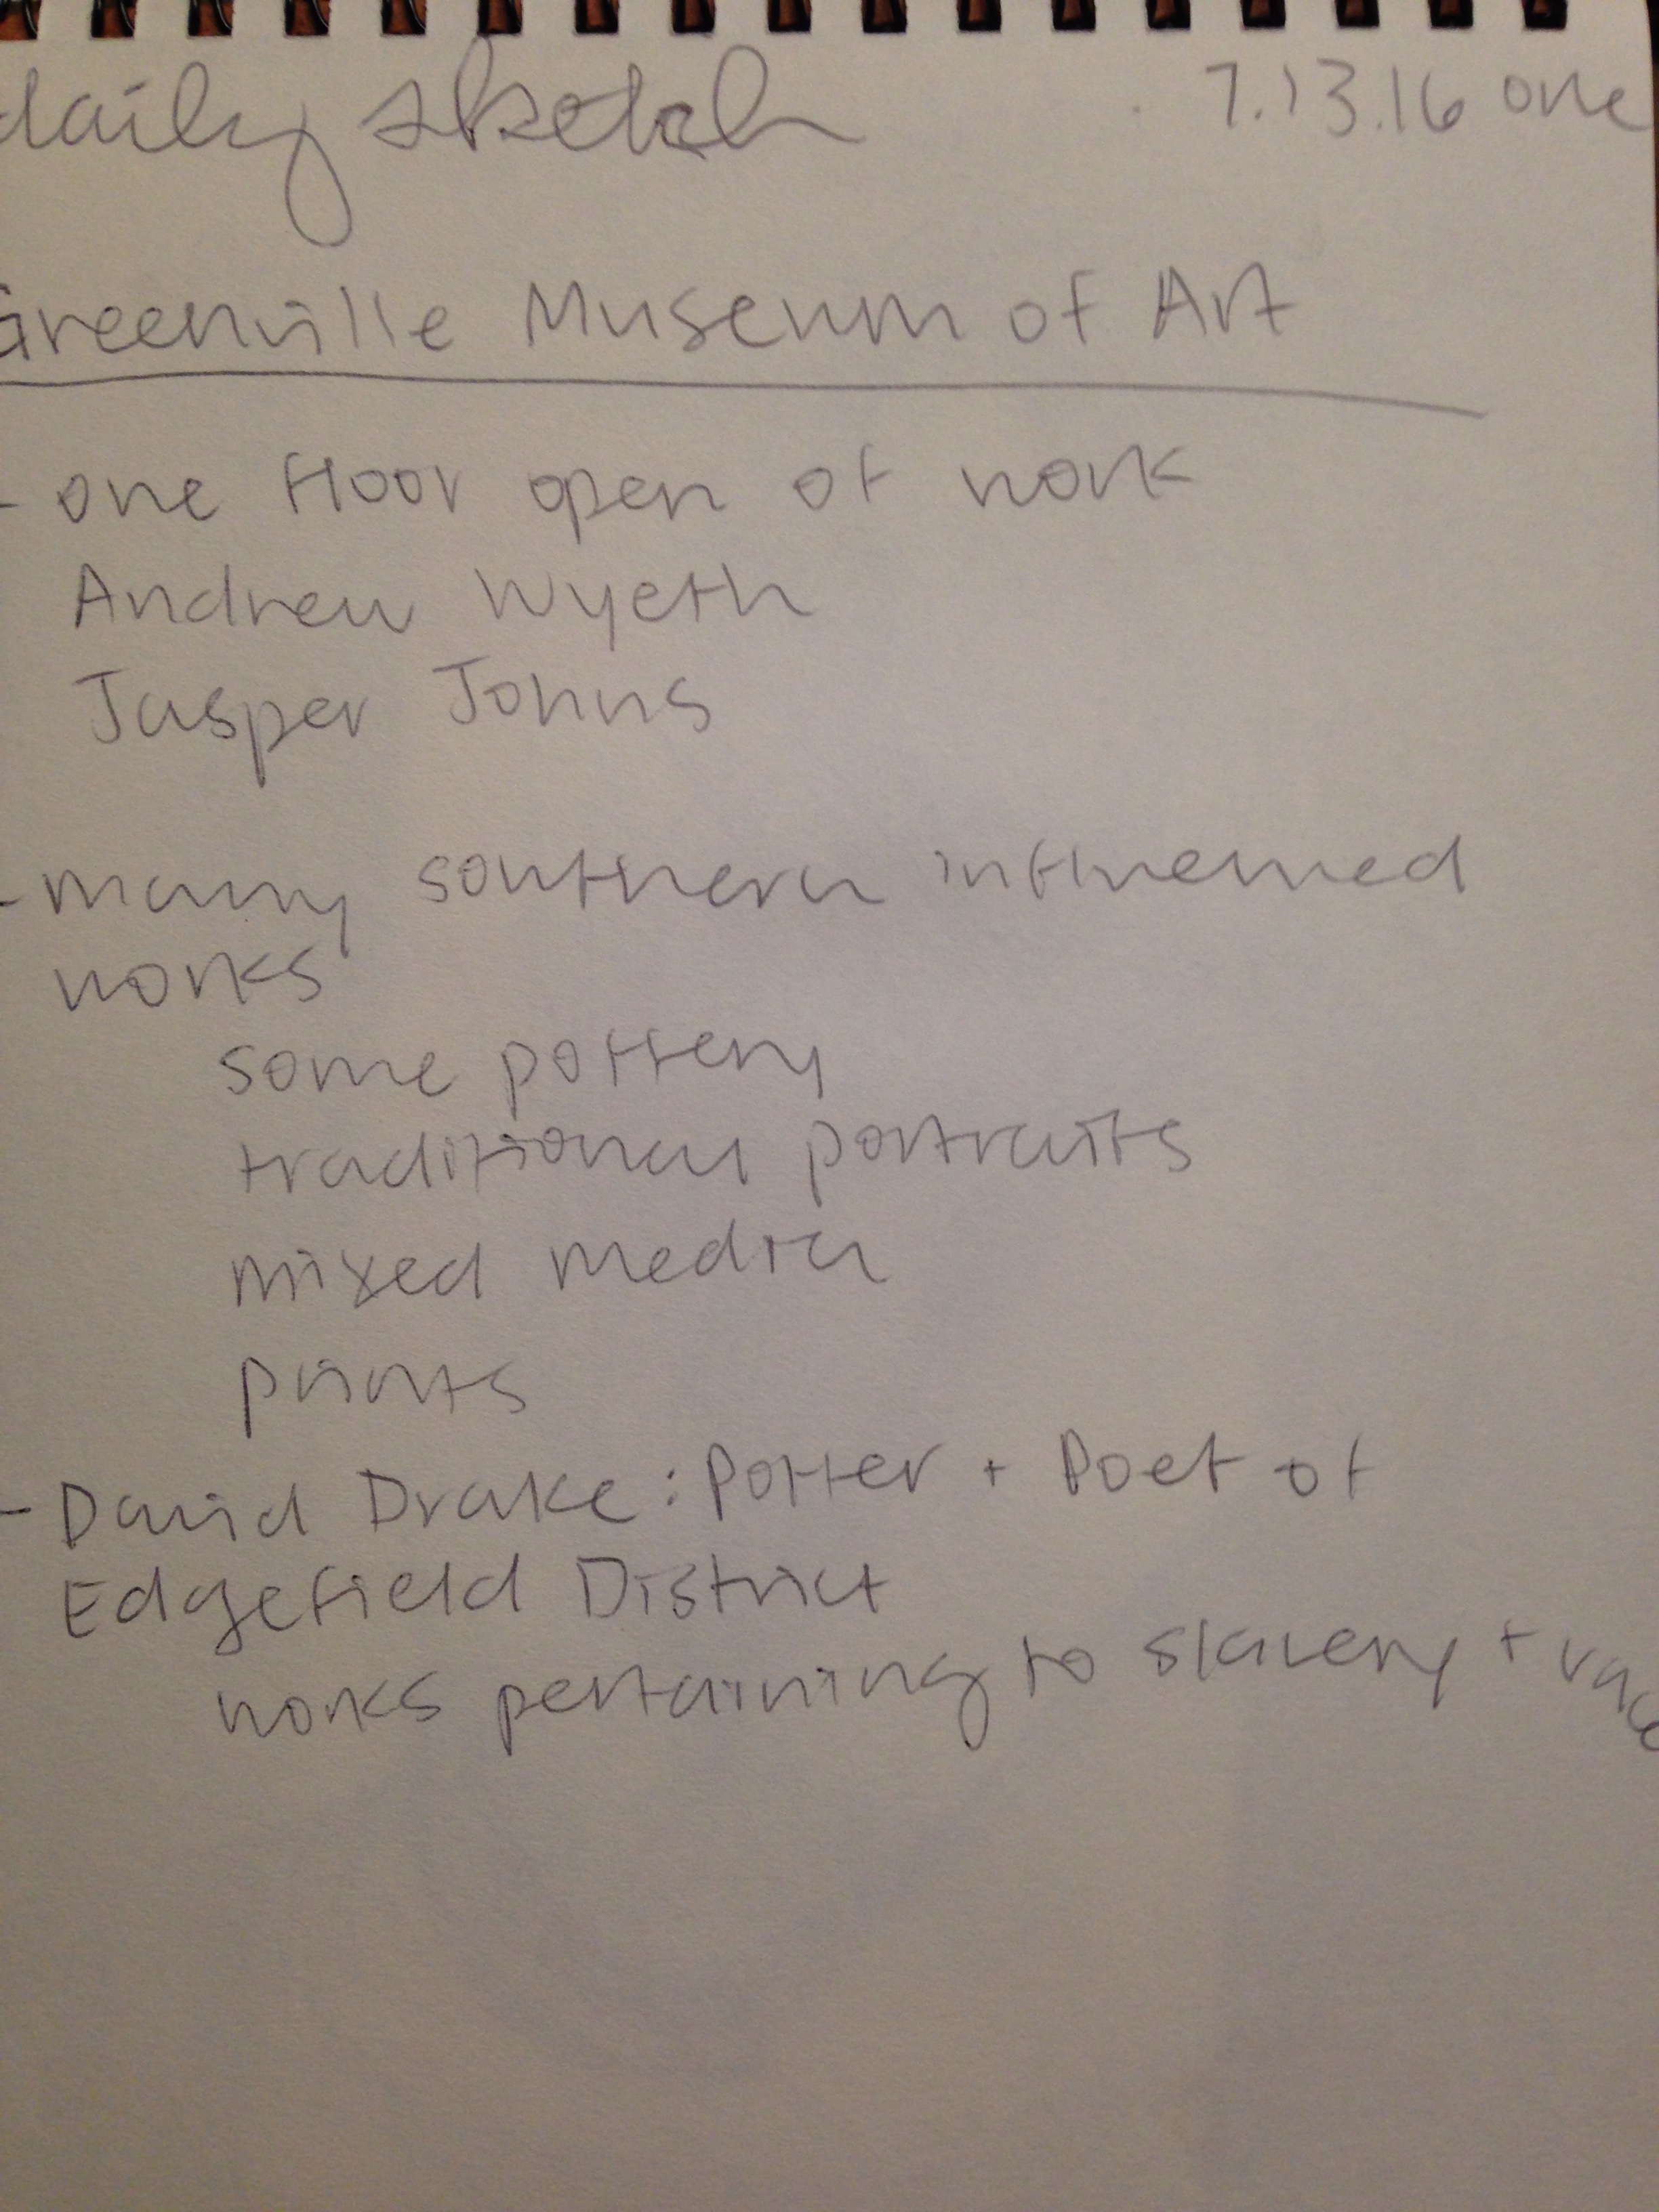 daily sketch 7.13.16 one
Greenville Museum of Art
- one floor open of work
Andrew Wyeth
Jasper Johns
- many southern influenced
works
some pottery
traditional portraits
mixed media
prints
- David Drake: Potter + Poet of
Edgefield District
works pertaining to slavery + race